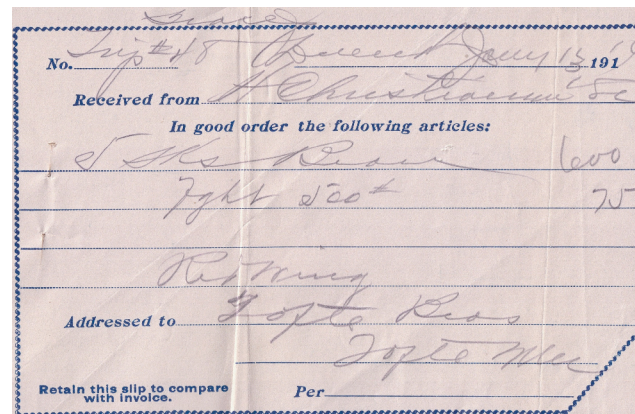 Grace
No. Trip # 48 Jany 13 191
Received from H Christiansen
In good order the following articles:
5 sks 600
Fght 500# 75
Red Wing
Addressed to Tofte Bros
Tofte
Retain this slip to compare
with invoice.
Per